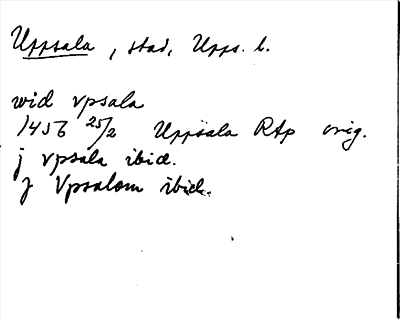 Uppsala, stad, Upps. l.
wid vpsala
1456 25/2 Uppsala RAp orig.
j vpsala ibid.
j Vpsalom ibid.